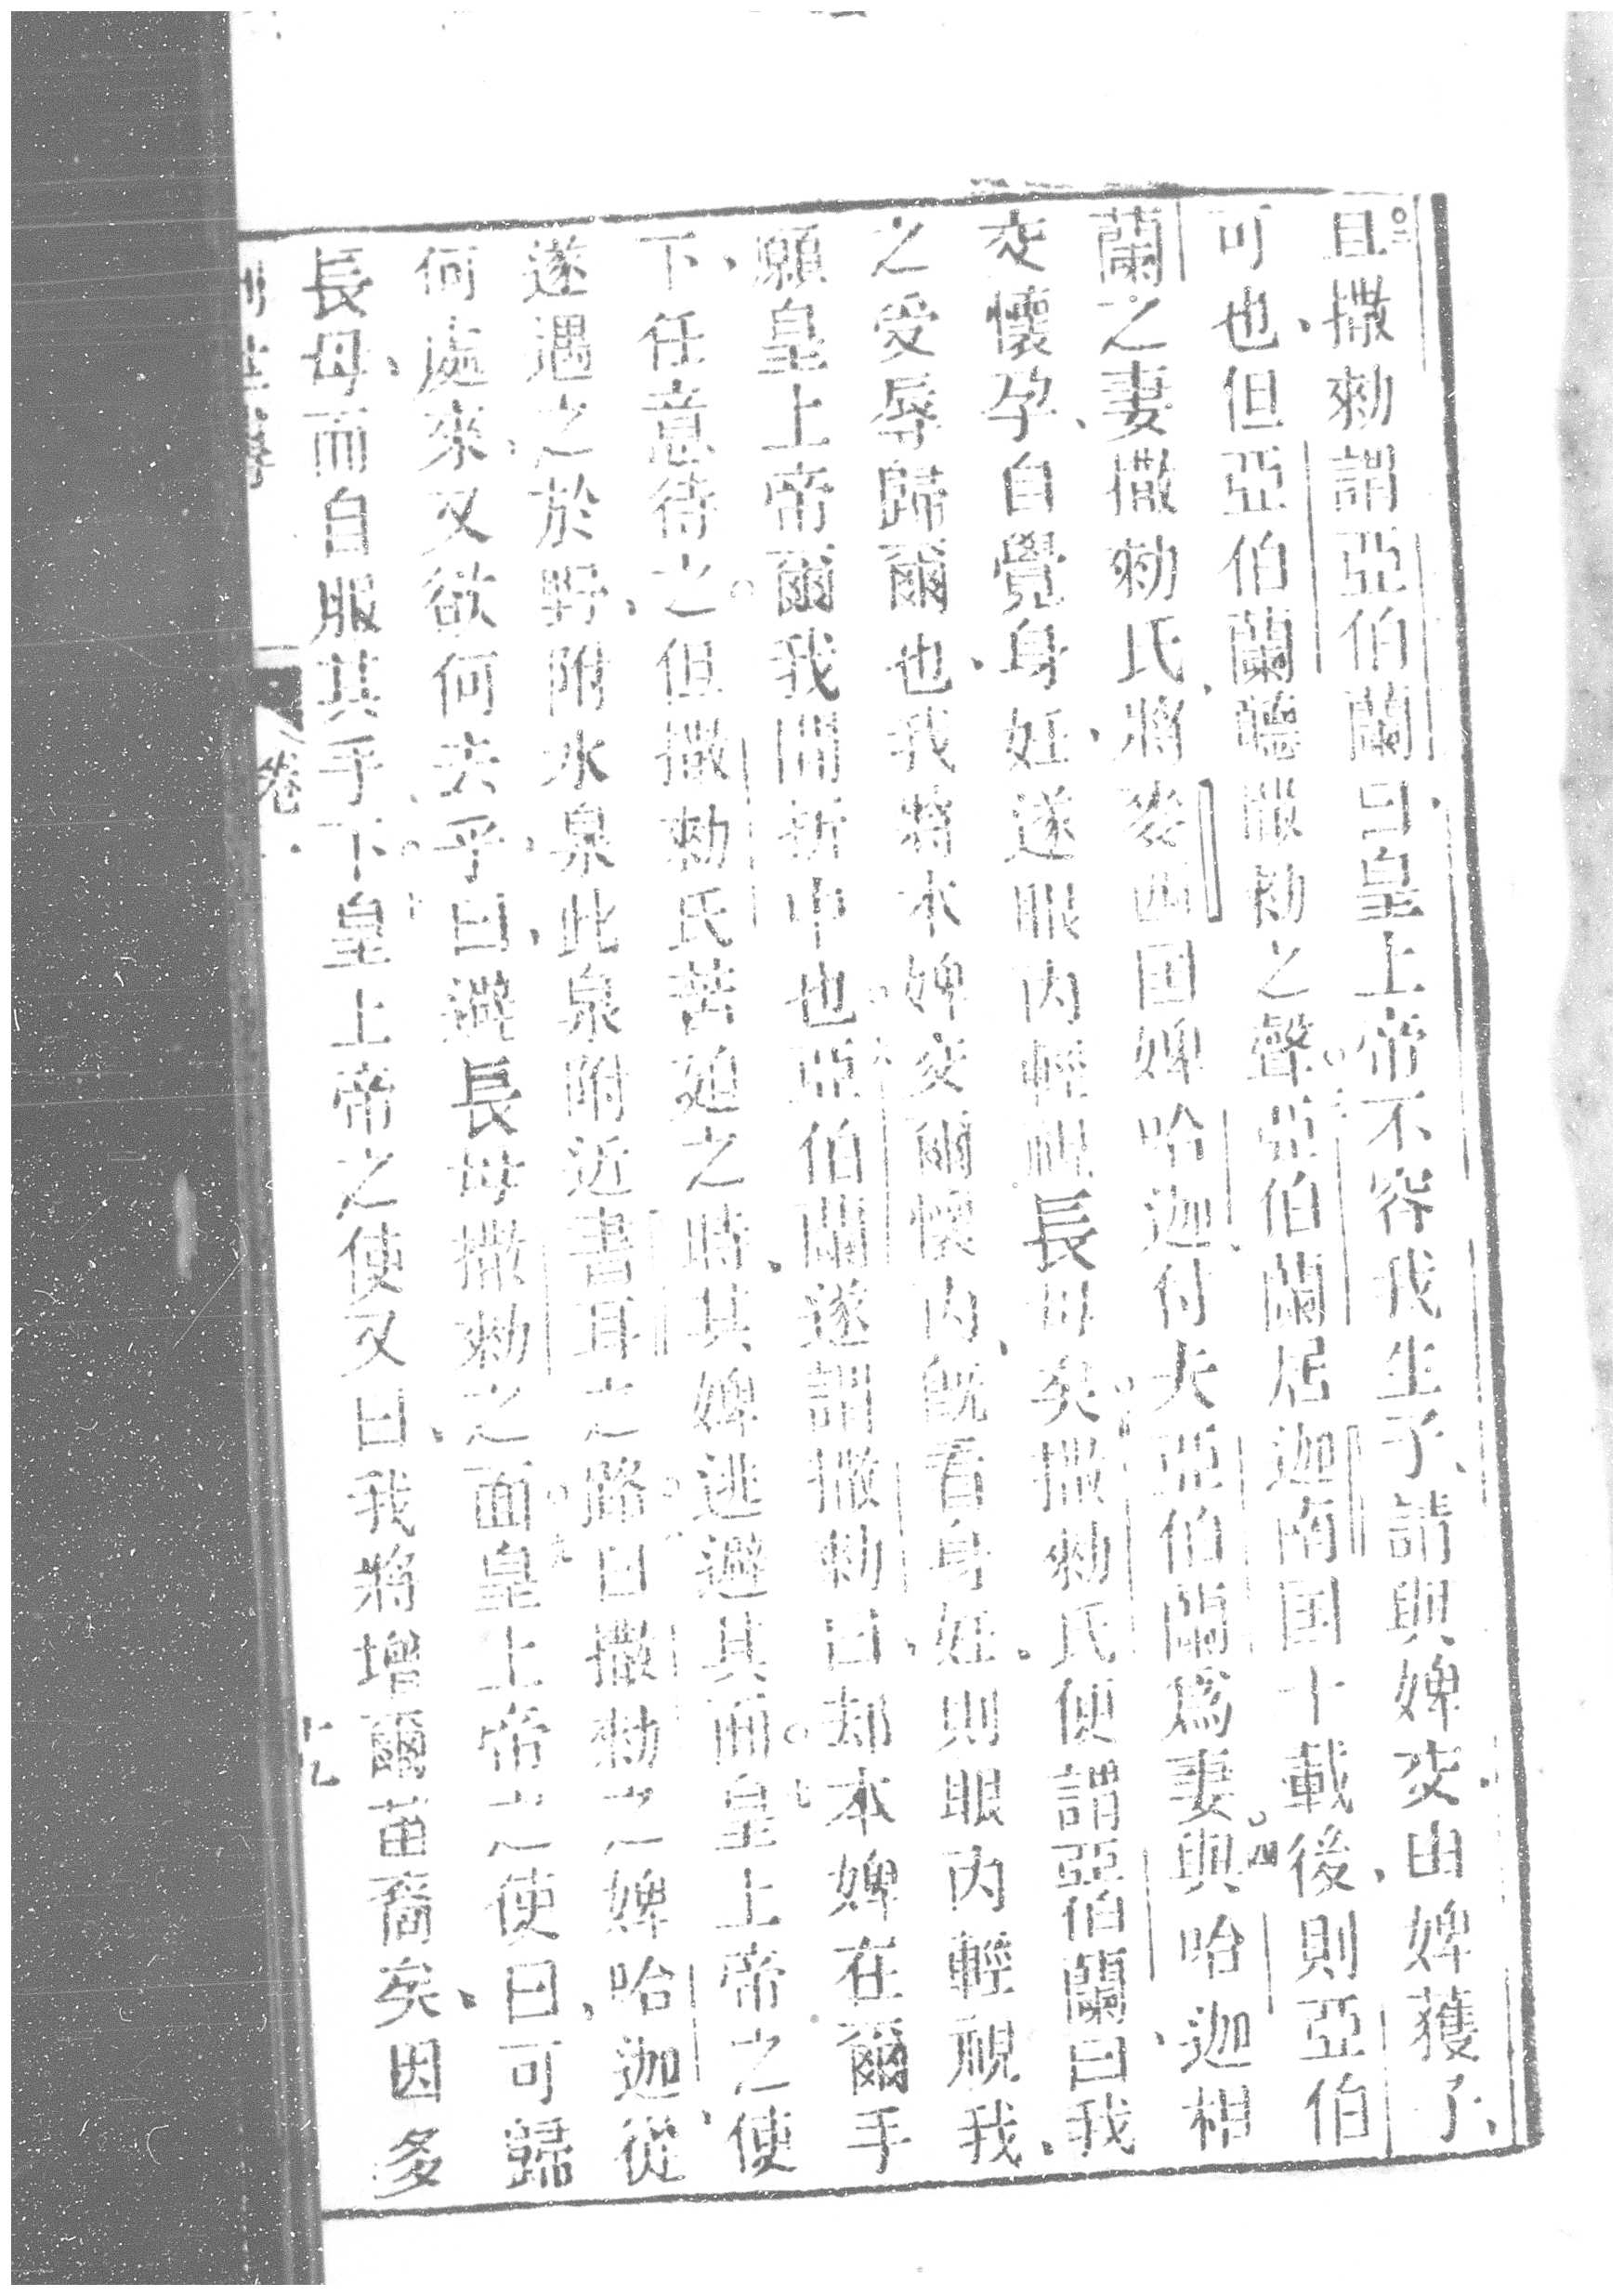 二且撒勑謂亞伯蘭曰皇上帝不容我生子、請與婢交、由婢獲子、
可也、但亞伯蘭聽撒勑之聲。三亞伯蘭居迦南国十載後、則亞伯
蘭之妻撒勑氏、將麥西国婢哈迦、付夫亞伯蘭爲妻。四與哈迦相
交懷孕、自覺身妊、遂眼內輕視長母矣。五撒勑氏便謂亞伯蘭曰、我
之受辱歸爾也、我將本婢交爾懷內、旣看身妊、則眼內輕視我、
願皇上帝爾我間折中也。六亞伯蘭遂謂撒勑曰、却本婢在爾手
下、任意待之。但撒勑氏苦迫之時、其婢逃避其面。七皇上帝之使
遂遇之於野、附水泉、此泉附近書耳之路。八曰撒勑之婢哈迦、從
何處來、又欲何去乎、曰避長母撒勑之面。九皇上帝之使曰、可歸
長母、而自服其手下。十皇上帝之使又曰、我將增爾苗裔矣、因多
卷一
十九